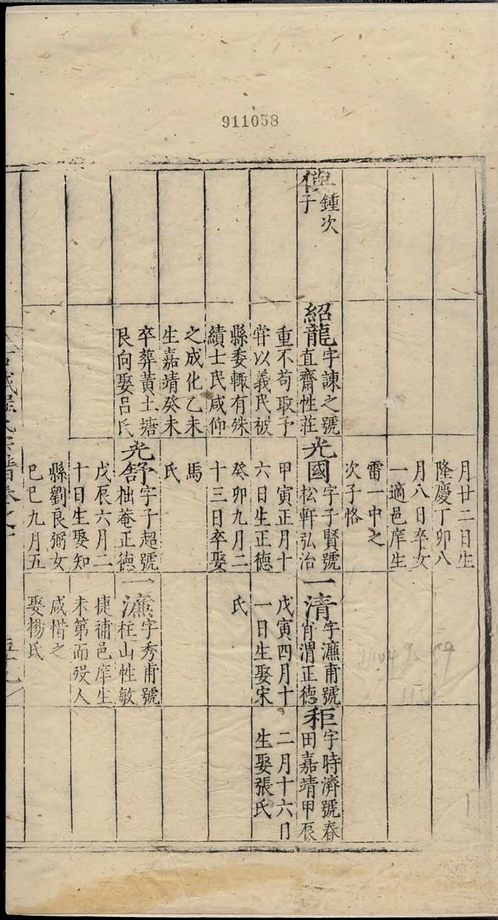 911058
月廿二日生
隆慶丁卯八
月八日卒女
一適邑庠生
雷一中之
次子恪
鍾次
子
紹龍
字諫之號
直齋性莊
重不苟取予
甞以義民被
縣委輙有殊
績士民咸仰
之成化乙未
生嘉靖癸未
卒葬黄土塘
艮向娶呂氏
光國
字子賢號
松軒弘治
甲寅正月十
六日生正德
癸卯九月二
十三日卒娶
馬
氏
光舒
字子超號
柮菴正德
戊辰六月二
十日生娶知
縣劉良弼女
巳巳九月五
一清
字濂甫號
肖渭正德
戊寅四月十
一日生娶宋
氏
一濂
字秀甫號
柱山性敏
捷補邑庠生
未第而殁人
咸惜之
娶楊氏
秬
字時濟號春
田嘉靖甲辰
二月十六日
生娶張氏